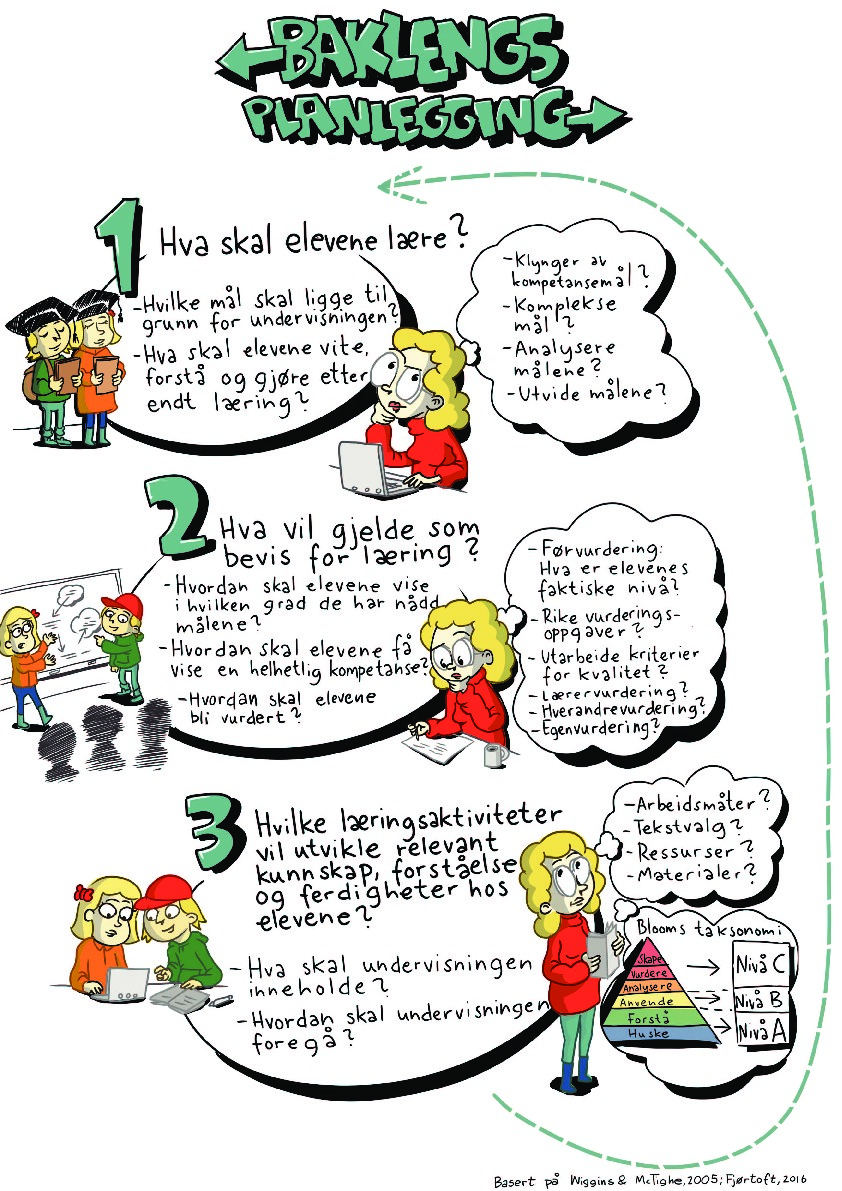 BAKLENGS
PLANLEGGING
1
Hva skal elevene lære?
-Hvilke mål skal ligge til
grunn for undervisningen?
-Hva skal elevene vite,
forstå og gjøre etter
endt læring?
-Klynger av
kompetansemål?
-Komplekse
mål?
-Analysere
målene?
-Utvide målene?
2
Hva vil gjelde som
bevis for læring?
-Hvordan skal elevene vise
i hvilken grad de har nådd
målene?
-Hvordan skal elevene få
vise en helhetlig kompetanse?
-Hvordan skal elevene
bli vurdert?
-Førvurdering:
Hva er elevenes
faktiske nivå?
-Rike vurderings-
oppgaver?
-Utarbeide kriterier
for kvalitet?
-Lærervurdering?
-Hverandrevurdering?
-Egenvurdering?
3
Hvilke læringsaktiviteter
vil utvikle relevant
kunnskap, forståelse
og ferdigheter hos
elevene?
-Hva skal undervisningen
inneholde?
-Hvordan skal undervisningen
foregå?
-Arbeidsmåter?
-Tekstvalg?
-Ressurser?
-Materialer?
Blooms taksonomi
Skape
Vurdere
Analysere
Anvende
Forstå
Huske
Nivå C
Nivå B
Nivå A
Basert på Wiggins & McTighe, 2005; Fjørtoft, 2016